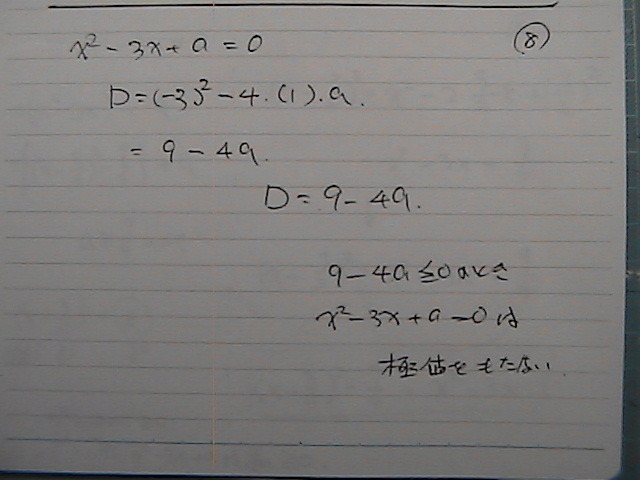 ⑧
x² - 3x + a = 0
D = (-3)² - 4・(1)・a.
= 9 - 4a.
D = 9 - 4a.
9 - 4a ≤ 0 のとき
x² - 3x + a = 0 は
極値をもたない.